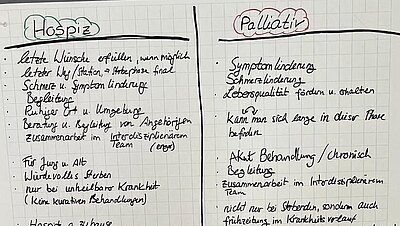 Hospiz
letzte Wünsche erfüllen, wenn möglich
letzter Weg/Station, Sterbephase final
Schmerz u. Symptomlinderung
Begleitung
Ruhiger Ort u. Umgebung
Beratung u. Begleitung von Angehörigen
Zusammenarbeit im Interdisziplinärem
Team (enge)
Für Jung u. Alt
Würdevolles Sterben
nur bei unheilbarer Krankheit
(Keine kurativen Behandlungen)
Hospiz u. zuhause
Palliativ
Symptomlinderung
Schmerzlinderung
Lebensqualität fördern u. erhalten
Kann man sich lange in dieser Phase
befinden
Akut Behandlung / chronisch
Begleitung
Zusammenarbeit im Interdisziplinärem
Team
nicht nur bei Sterbenden, sondern auch
frühzeitig im Krankheitsverlauf